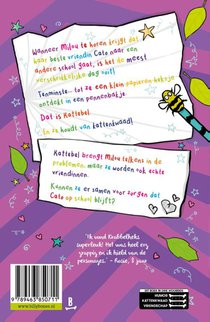 Wanneer Milou te horen krijgt dat
haar beste vriendin Cato naar een
andere school gaat, is het de meest
verschrikkelijke dag ooit!
Tenminste... tot ze een klein papieren heksje
ontdekt in een pennenbakje.
Dat is Kattebel.
En ze houdt van kattenkwaad!
Kattebel brengt Milou telkens in de
problemen, maar ze worden ook echte
vriendinnen.
Kunnen ze er samen voor zorgen dat
Cato op school blijft?
"Ik vind Krabbelheks
superleuk! Het was heel erg
grappig en ik hield van de
personages." - Rosie, 8 jaar
9 789463 850711 >
www.billybones.nl
B
HUMOR
KATTENKWAAD
VRIENDSCHAP